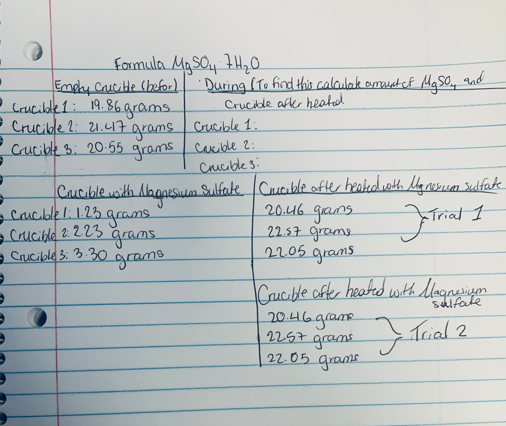 Formula MgSO4 7H2O
Empty Crucible (befor)
Crucible 1: 19.86 grams
Crucible 2: 21.47 grams
Crucible 3: 20.55 grams
During (To find this calculate amount of MgSO4 and
Crucible after heated
Crucible 1:
Crucible 2:
Crucible 3:
Crucible with Magnesium Sulfate
Crucible 1: 1.23 grams
Crucible 2: 2.23 grams
Crucible 3: 3.30 grams
Crucible after heated with Magnesium sulfate
20.46 grams
22.57 grams
22.05 grams
Trial 1
Crucible after heated with Magnesium
sulfate
20.46 grams
22.57 grams
22.05 grams
Trial 2